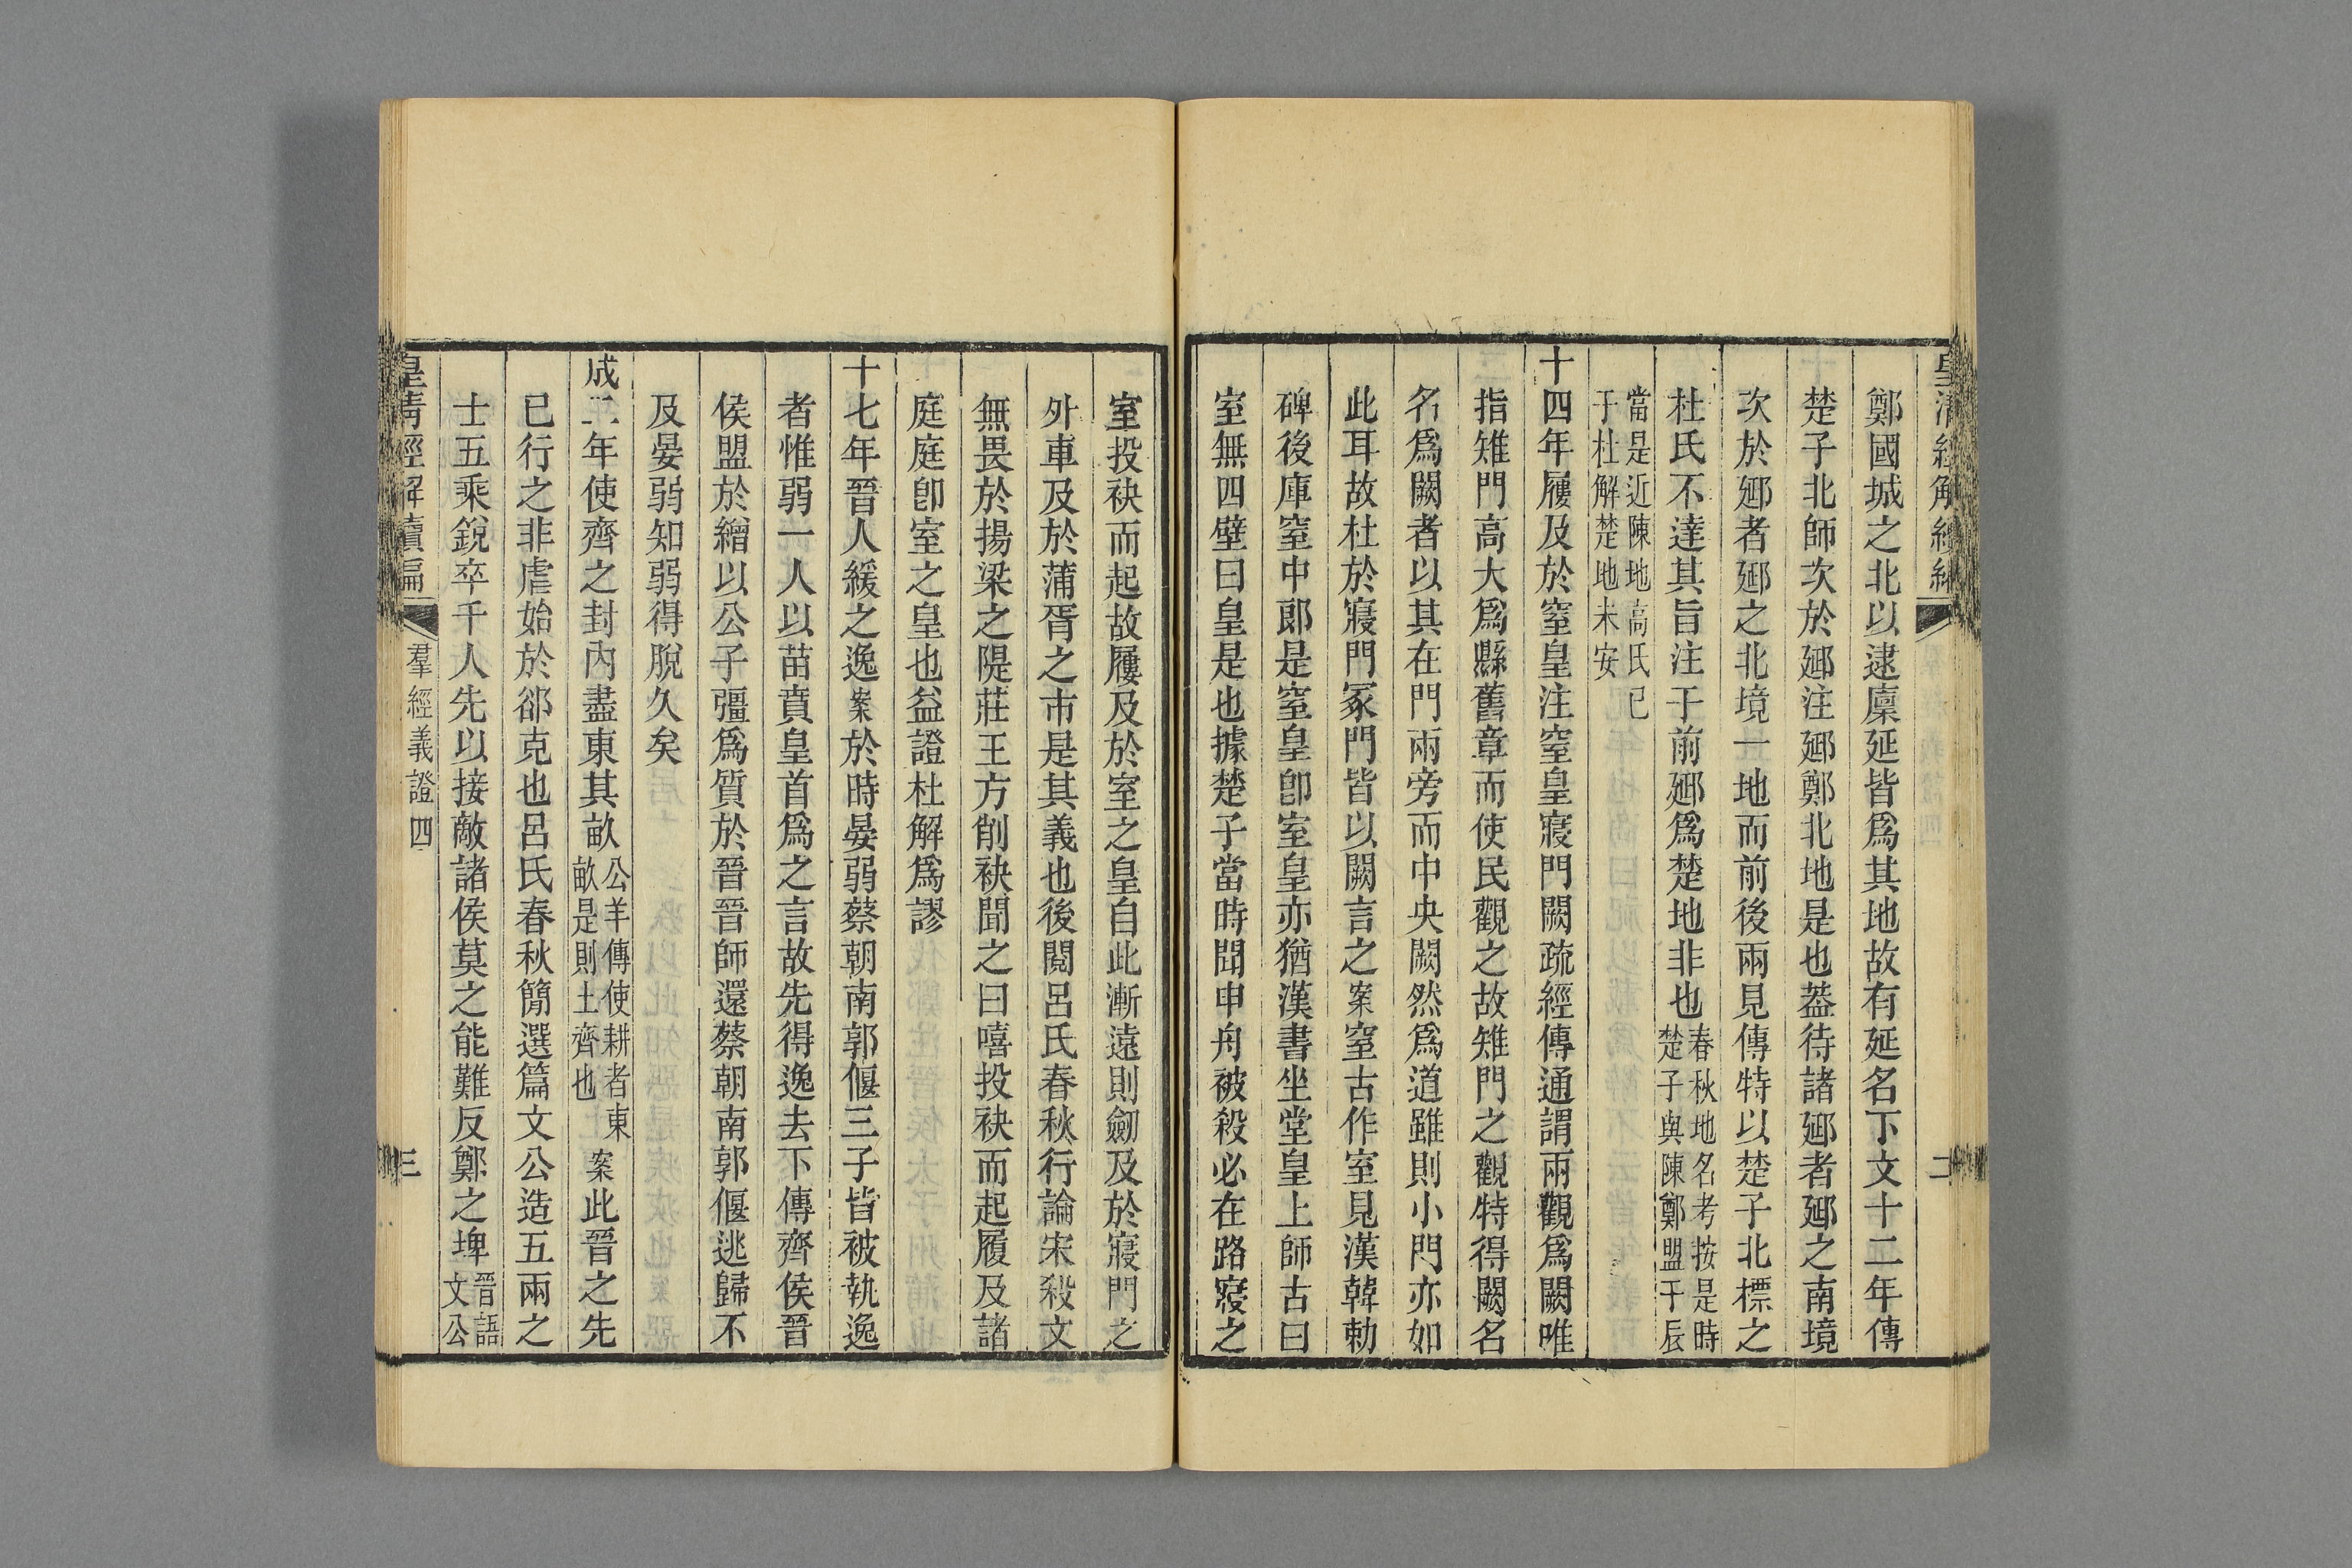 鄭國城之北以逮廩延皆爲其地故有延名下文十二年傳
楚子北師次於郔注郔鄭北地是也葢待諸郔者郔之南境
次於郔者郔之北境一地而前後兩見傳特以楚子北標之
杜氏不達其旨注于前郔爲楚地非也春秋地名考按是時楚子與陳鄭盟于辰
當是近陳地高氏已于杜解楚地未安
十四年屨及於窒皇注窒皇寢門闕疏經傳通謂兩觀爲闕唯
指雉門高大爲縣舊章而使民觀之故雉門之觀特得闕名
名爲闕者以其在門兩旁而中央闕然爲道雖則小門亦如
此耳故杜於寢門冢門皆以闕言之案窒古作室見漢韓勅
碑後庫窒中郎是窒皇卽室皇亦猶漢書坐堂皇上師古曰
室無四壁曰皇是也據楚子當時聞申舟被殺必在路寢之
室投袂而起故屨及於室之皇自此漸遠則劒及於寢門之
外車及於蒲胥之市是其義也後閱呂氏春秋行論宋殺文
無畏於揚梁之隄莊王方削袂聞之曰嘻投袂而起履及諸
庭庭卽室之皇也益證杜解爲謬
十七年晉人緩之逸案於時晏弱蔡朝南郭偃三子皆被執逸
者惟弱一人以苗賁皇首爲之言故先得逸去下傳齊侯晉
侯盟於繒以公子彊爲質於晉晉師還蔡朝南郭偃逃歸不
及晏弱知弱得脫久矣
成二年使齊之封內盡東其畝公羊傳使耕者東畝是則土齊也案此晉之先
已行之非虐始於郤克也呂氏春秋簡選篇文公造五兩之
士五乘銳卒千人先以接敵諸侯莫之能難反鄭之埤晉語文公
皇淸經解續編
羣經義證四
三